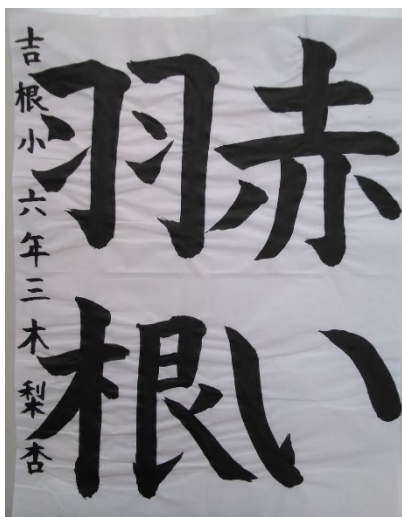 赤い
羽根
吉根小六年三木梨杏